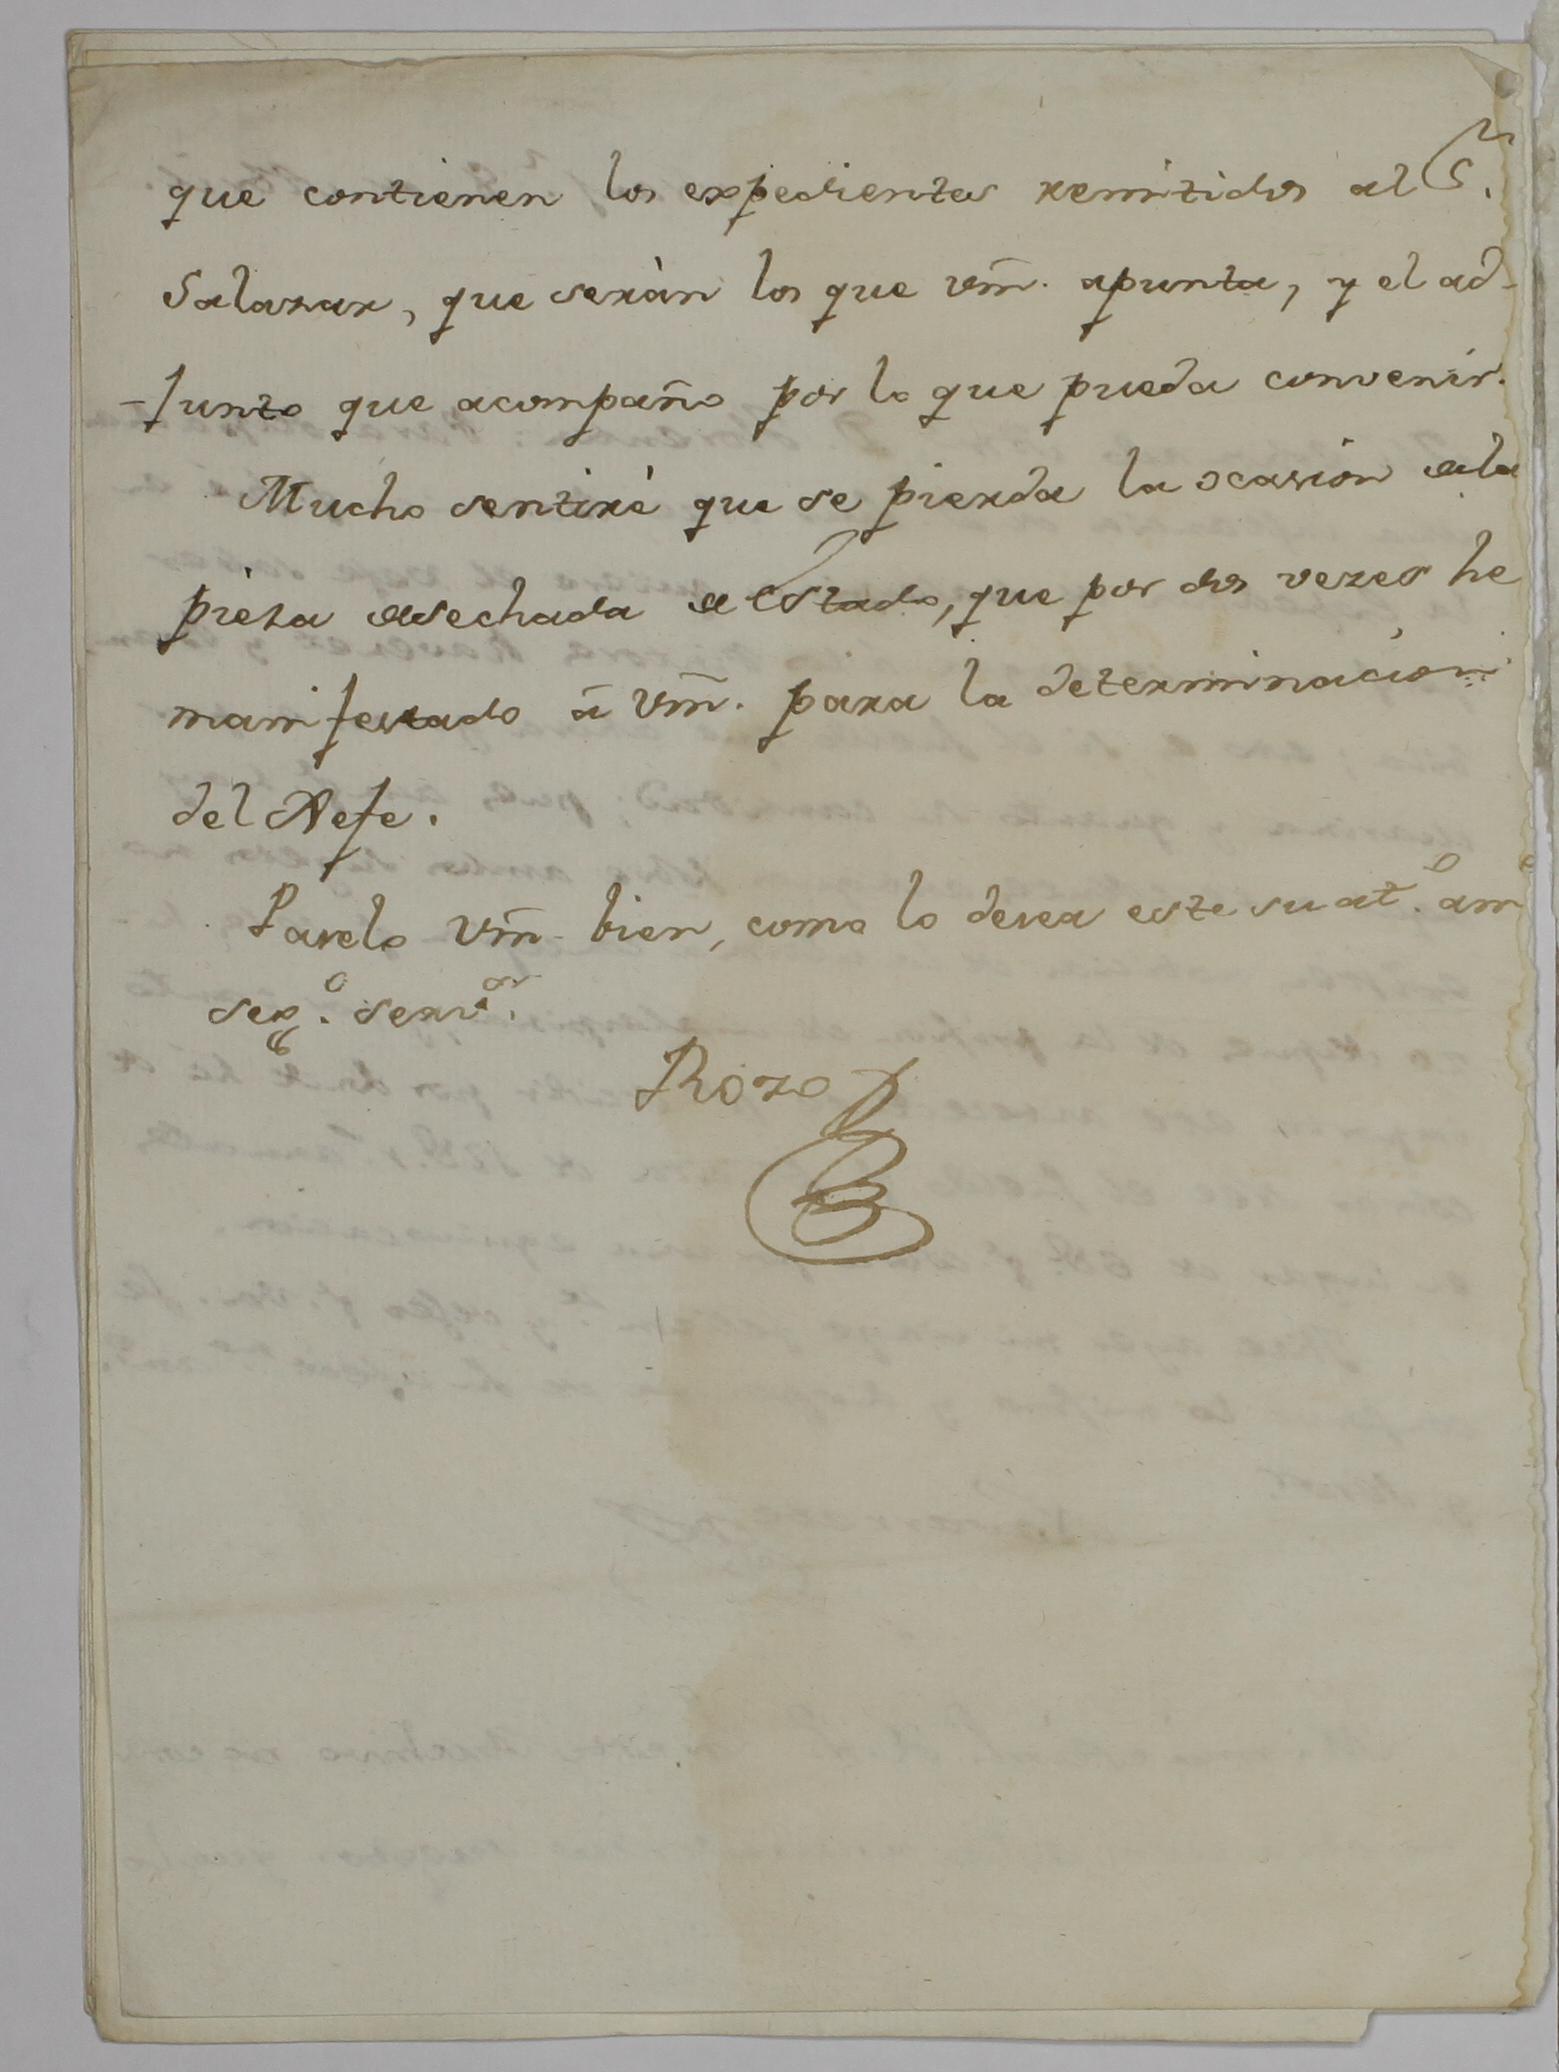 que contienen los expedientes remitidos al S.r
Salazar, que seràn los que Vm̃. apunta, y el ad-
-junto que acompaño por lo que pueda convenir.
Mucho sentirè que se pierda la ocasion de la
pieza desechada de Estado, que por dos vezes he
manifestado à Vm̃. para la determinacion
del Xefe.
Paselo Vm̃. bien, como lo desea este su at.o am.o
seg.o serv.or
Rozo